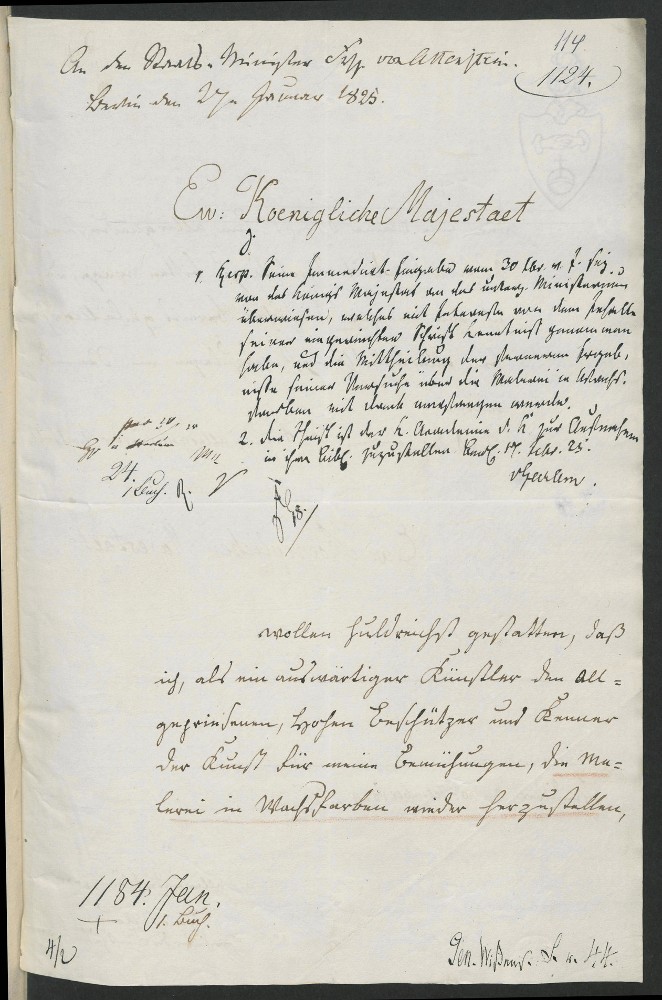 114.
An den Staats-Minister Frh. von Altenstein.
1124.
Berlin den 27n Januar 1825.
Ew: Koenigliche Majestaet
1. Resp. Seine Immediat-Eingabe vom 30 Xbr. v. J. sey
von des Königs Majestät an das unterz. Ministerium
überwiesen, welches mit Interesse von dem Inhalte
seiner eingereichten Schrift Kenntniß genommen
habe, und die Mittheilung der ferneren Ergeb-
nisse seiner Versuche über die Malerei in Wachs-
farben mit Dank empfangen werde.
2. die Schrift ist der K. Academie d. K. zur Aufnahme
in ihre Bibl. zuzustellen Berl. 17. Febr. 25.
24.
1 Buch.
18.
wollen huldreichst gestatten, daß
ich, als ein auswärtiger Künstler den all-
gepriesenen, hohen Beschützer und Kenner
der Kunst für meine Bemühungen, die Ma-
lerei in Wachsfarben wieder herzustellen,
1184. Jan.
1. Buch.
4/2